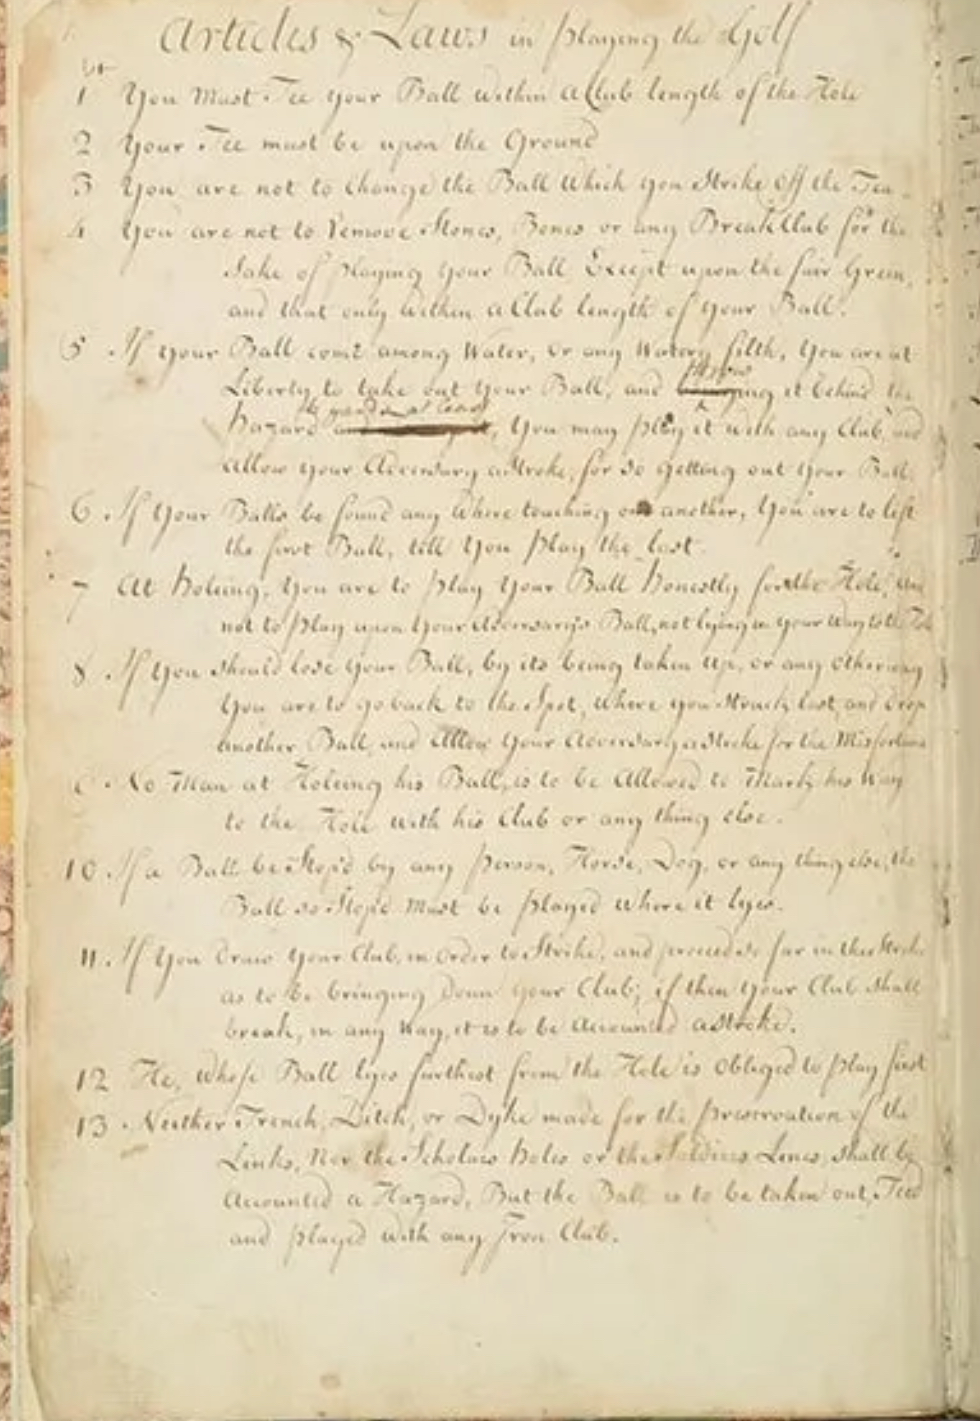 Articles & Laws in playing the Golf
1st You Must Tee your Ball within a Club length of the Hole
2 Your Tee must be upon the Ground
3 You are not to Change the Ball which you Strike off the Tee
4 You are not to Remove Stones, Bones or any Break Club for the
Sake of playing Your Ball Except upon the fair Green,
and that only within a Club length of Your Ball.
5 If Your Ball come among Water, or any Watery filth, You are at
throw
Liberty to take out Your Ball, and it behind the
6 yards at least
hazard, You may play it with any Club, and
Allow Your Adversary a Stroke, for so getting out Your Ball.
6 If Your Balls be found any where touching one another, You are to lift
the first Ball, till You play the last.
7 At holeing, You are to play Your Ball honestly for the Hole, and
not to play upon Your Adversary's Ball, not lying in Your way to the Hole
8 If You should lose Your Ball, by its being taken up, or any other way
You are to go back to the Spot, where you Struck last, and drop
another Ball, and Allow Your Adversary a Stroke for the Misfortune
9 No Man at Holeing his Ball, is to be Allowed to Mark his Way
to the Hole with his Club or any thing else.
10. If a Ball be Stop'd by any person, Horse, Dog, or any thing else, the
Ball so Stop'd Must be played where it lyes.
11. If You draw Your Club, in Order to Strike, and proceed so far in the Stroke
as to be bringing down Your Club; if then Your Club shall
break, in any Way, it is to be Accounted a Stroke.
12 He, whose Ball lyes furthest from the Hole is Obliged to play first
13. Neither Trench, Ditch, or Dyke made for the preservation of the
Links, Nor the Scholars holes or the Soldiers Lines, Shall be
Accounted a Hazard, But the Ball is to be taken out, Teed
and played with any Iron Club.